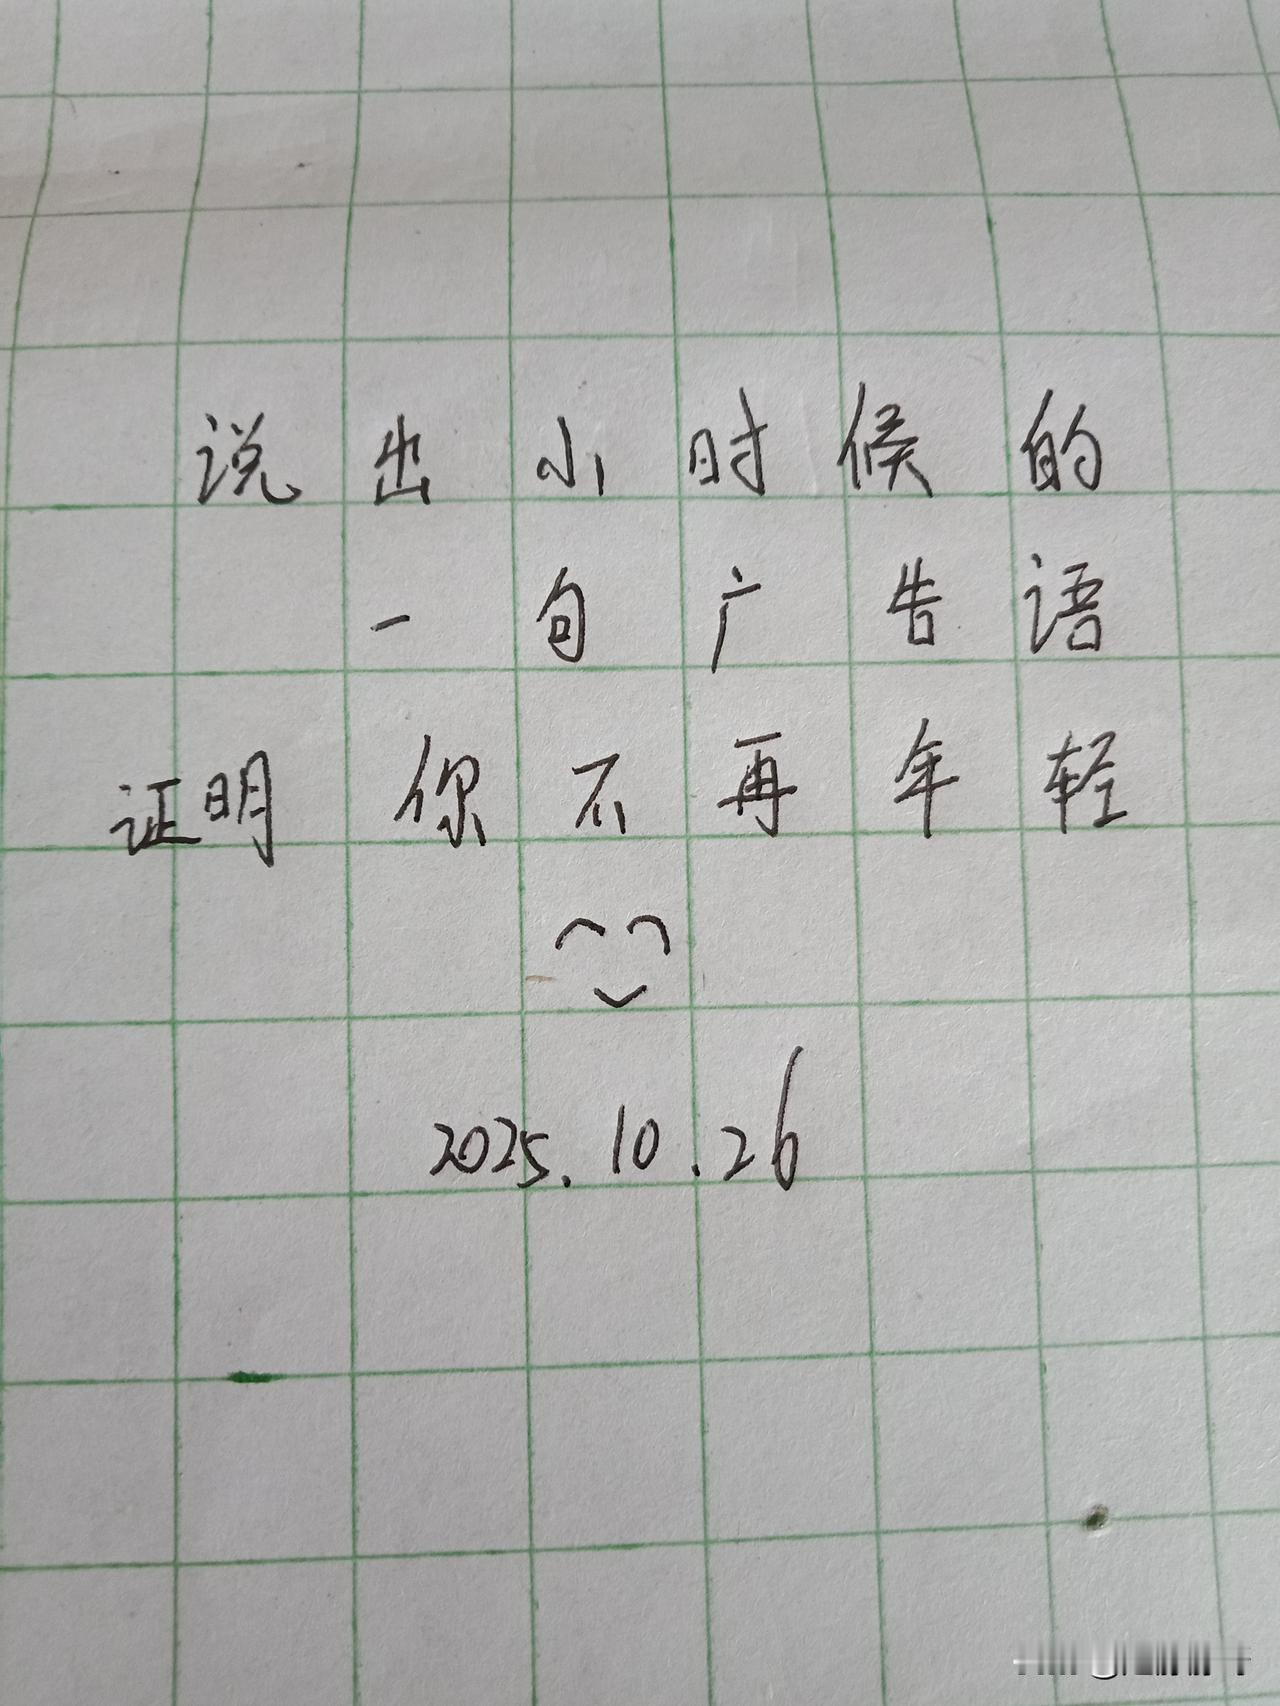 说出小时候的
一句广告语
证明你不再年轻
2025.10.26